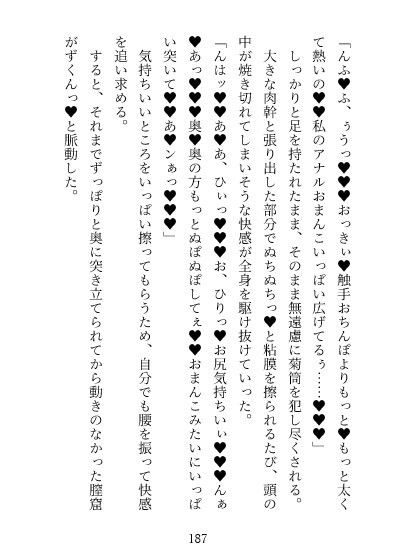 「んふ♥ふ、ぅうっ♥♥♥おっきぃ♥触手おちんぽよりもっと♥もっと太く
て熱いの♥♥私のアナルおまんこいっぱい広げてるぅ……♥♥♥」
しっかりと足を持たれたまま、そのまま無遠慮に菊筒を犯し尽くされる。
大きな肉幹と張り出した部分でぬちぬちっ♥と粘膜を擦られるたび、頭の
中が焼き切れてしまいそうな快感が全身を駆け抜けていった。
「んはッ♥♥あ♥あ、ひぃっ♥♥♥お、ひりっ♥お尻気持ちいぃ♥♥♥んぁ
♥あっ♥♥♥奥♥奥の方もっとぬぽぬぽしてぇ♥♥おまんこみたいにいっぱ
い突いて♥♥あ♥ンぁっ♥♥♥」
気持ちいいところをいっぱい擦ってもらうため、自分でも腰を振って快感
を追い求める。
すると、それまでずっぽりと奥に突き立てられてから動きのなかった膣窟
がずくんっ♥と脈動した。
187